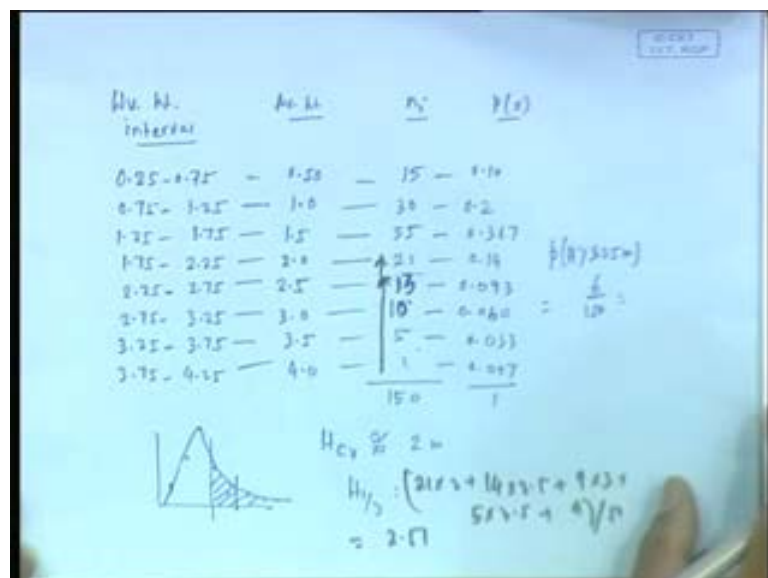 Wv. ht. Av. ht n; p(x)
interval
0.25-0.75 - 0.50 - 15 - 0.10
0.75- 1.25 - 1.0 - 30 - 0.2
1.25- 1.75 - 1.5 - 55 - 0.367
1.75- 2.25 - 2.0 - 21 - 0.14
2.25- 2.75 - 2.5 - 13 - 0.093
2.75- 3.25 - 3.0 - 10 - 0.060
3.25- 3.75 - 3.5 - 5 - 0.033
3.75- 4.25 - 4.0 - 1 - 0.007
150 1
p(H>3.25m)
= 6/150 =
≈ 2m
H1/3 : (21x2 + 14x2.5 + 9x3+
5x3.5 + 4)/50
= 2.51